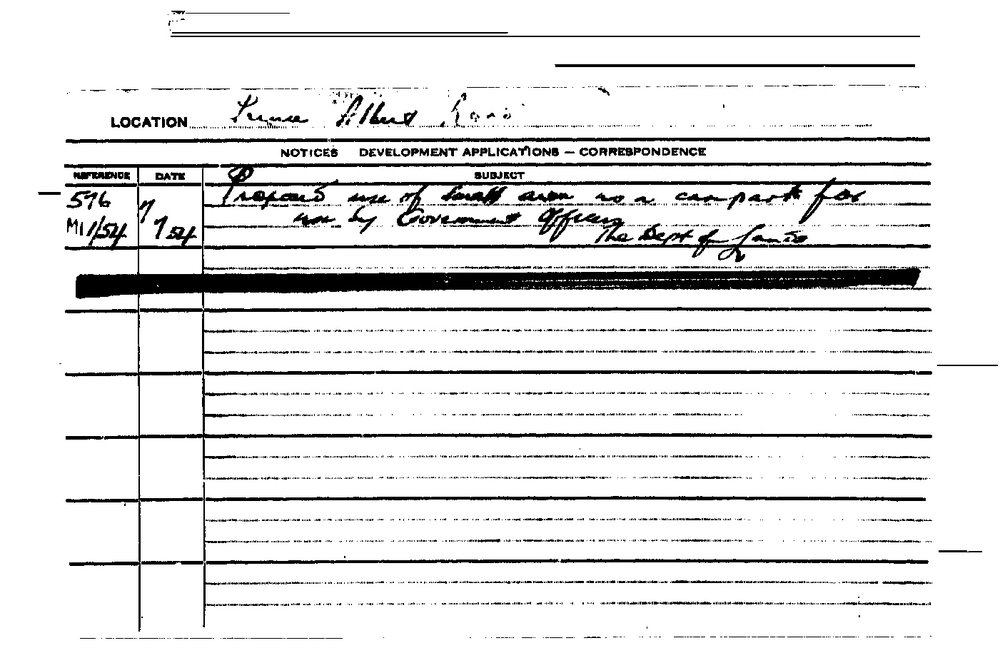 LOCATION Prince Albert Road
NOTICES DEVELOPMENT APPLICATIONS — CORRESPONDENCE
REFERENCE DATE SUBJECT
596 7 Proposed use of small area as a car park for
use by Government Officers
M11/54 7 54 The Dept of Lands